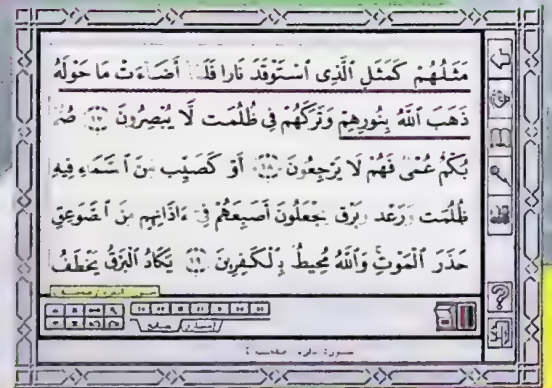 مَثَلُهُمْ كَمَثَلِ ٱلَّذِى ٱسْتَوْقَدَ نَارا فَلَمَّا أَضَاءَتْ مَا حَوْلَهُ
ذَهَبَ ٱللَّهُ بِنُورِهِمْ وَتَرَكَهُمْ فِى ظُلُمَت لَّا يُبْصِرُونَ ١٧ صُمُّ
بُكْمٌ عُمْىٌ فَهُمْ لَا يَرْجِعُونَ ١٨ أَوْ كَصَيِّب مِّنَ ٱلسَّمَاءِ فِيهِ
ظُلُمَت وَرَعْد وَبَرْق يَجْعَلُونَ أَصَبِعَهُمْ فِى ءَاذَانِهِم مِّنَ ٱلصَّوَعِقِ
حَذَرَ ٱلْمَوْتِ وَٱللَّهُ مُحِيطٌ بِٱلْكَفِرِينَ ١٩ يَكَادُ ٱلْبَرْقُ يَخْطَفُ